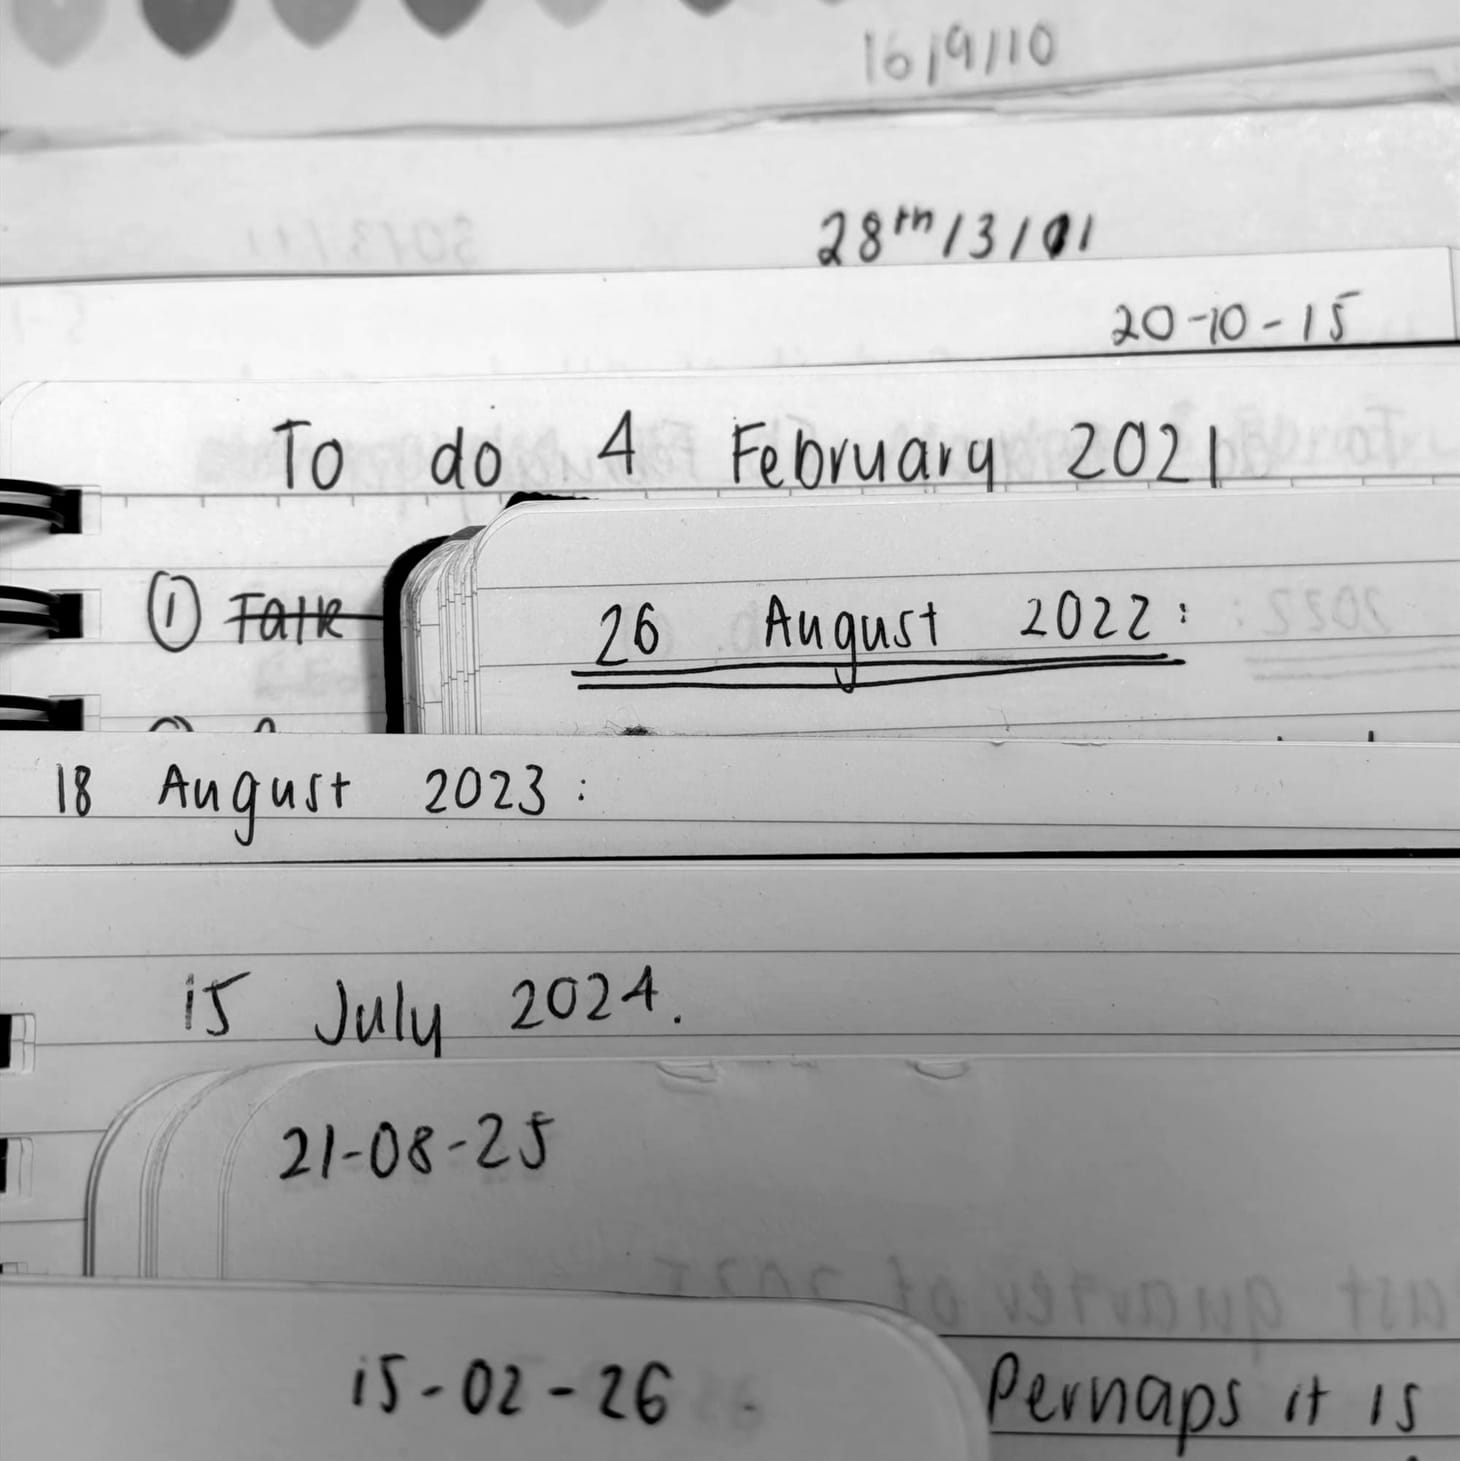 16/9/10
28th/3/11
20-10-15
To do 4 February 2021
① Talk
26 August 2022:
18 August 2023:
15 July 2024.
21-08-25
15-02-26
Perhaps it is